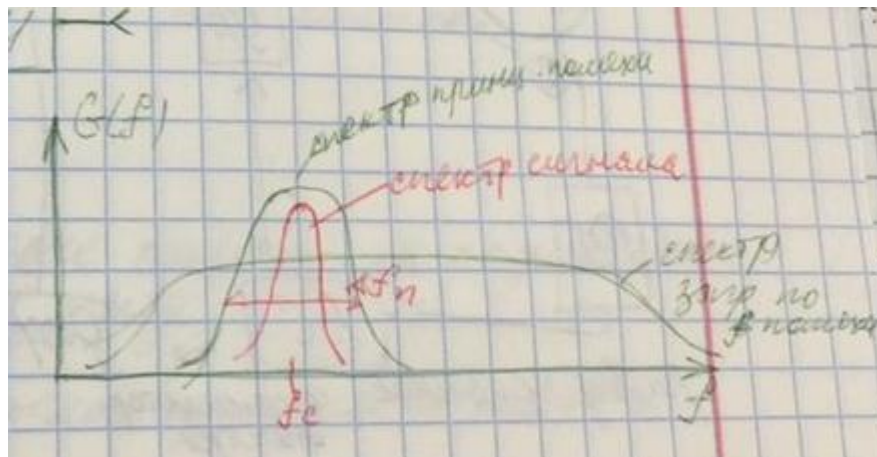 G(f)
спектр прин. помехи
спектр сигнала
fп
спектр
загр. по
f помехи
fc
f